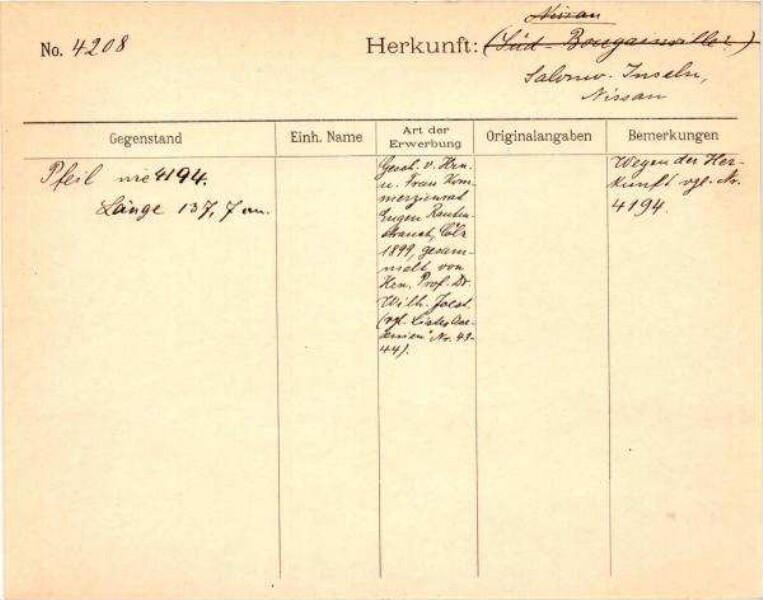 Nissan
No. 4208 Herkunft: (Süd-Bougainville.)
Salomo-Inseln,
Nissan
Gegenstand Einh. Name Art der Erwerbung Originalangaben Bemerkungen
Pfeil wie 4194.
Länge 137,7 cm.
Gesch. v. Hrn.
u. Frau Kom-
merzienrat
Eugen Rauten-
strauch, Cöln
1899, gesam-
melt von
Hrn. Prof. Dr.
Wilh. Joest.
(vgl. Liste Oze-
anien" Nr. 43-
44).
Wegen der Her-
kunft vgl. Nr.
4194.